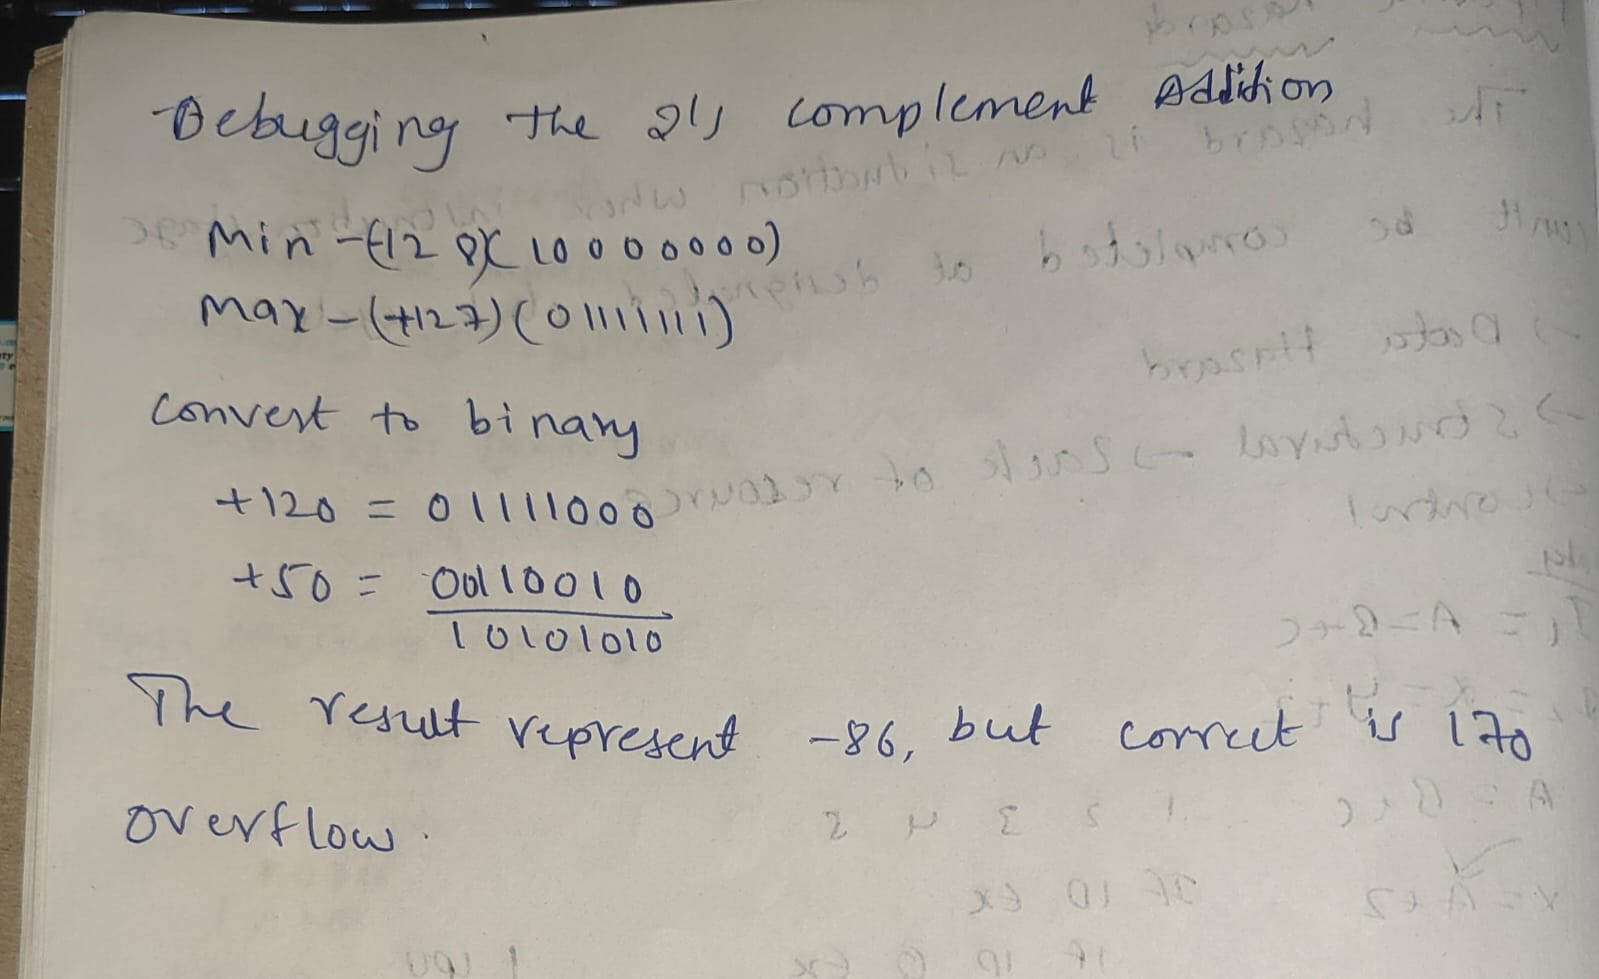 Debugging the 2's complement Addition
Min -(-128)(10000000)
Max - (+127)(01111111)
convert to binary
+120 = 01111000
+50 = 00110010
10101010
The result represent -86, but correct is 170
overflow.